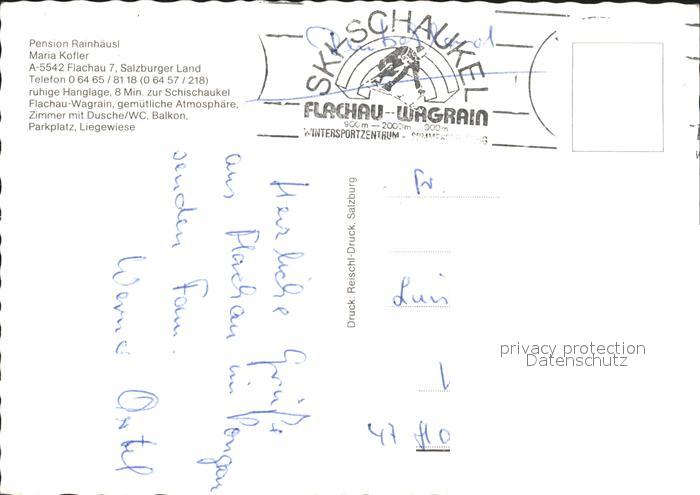 Pension Rainhäusl
Maria Kofler
A-5542 Flachau 7, Salzburger Land
Telefon 0 64 65 / 81 18 (0 64 57 / 218)
ruhige Hanglage, 8 Min. zur Schischaukel
Flachau-Wagrain, gemütliche Atmosphäre,
Zimmer mit Dusche/WC, Balkon,
Parkplatz, Liegewiese
SKI-SCHAUKEL
FLACHAU--WAGRAIN
900m — 2000m 900m
WINTERSPORTZENTRUM -
Herzliche Grüße
aus Flachau im Pongau
senden Fam.
Werner
Druck: Reischl-Druck, Salzburg
Fr.
Luis
47
privacy protection
Datenschutz